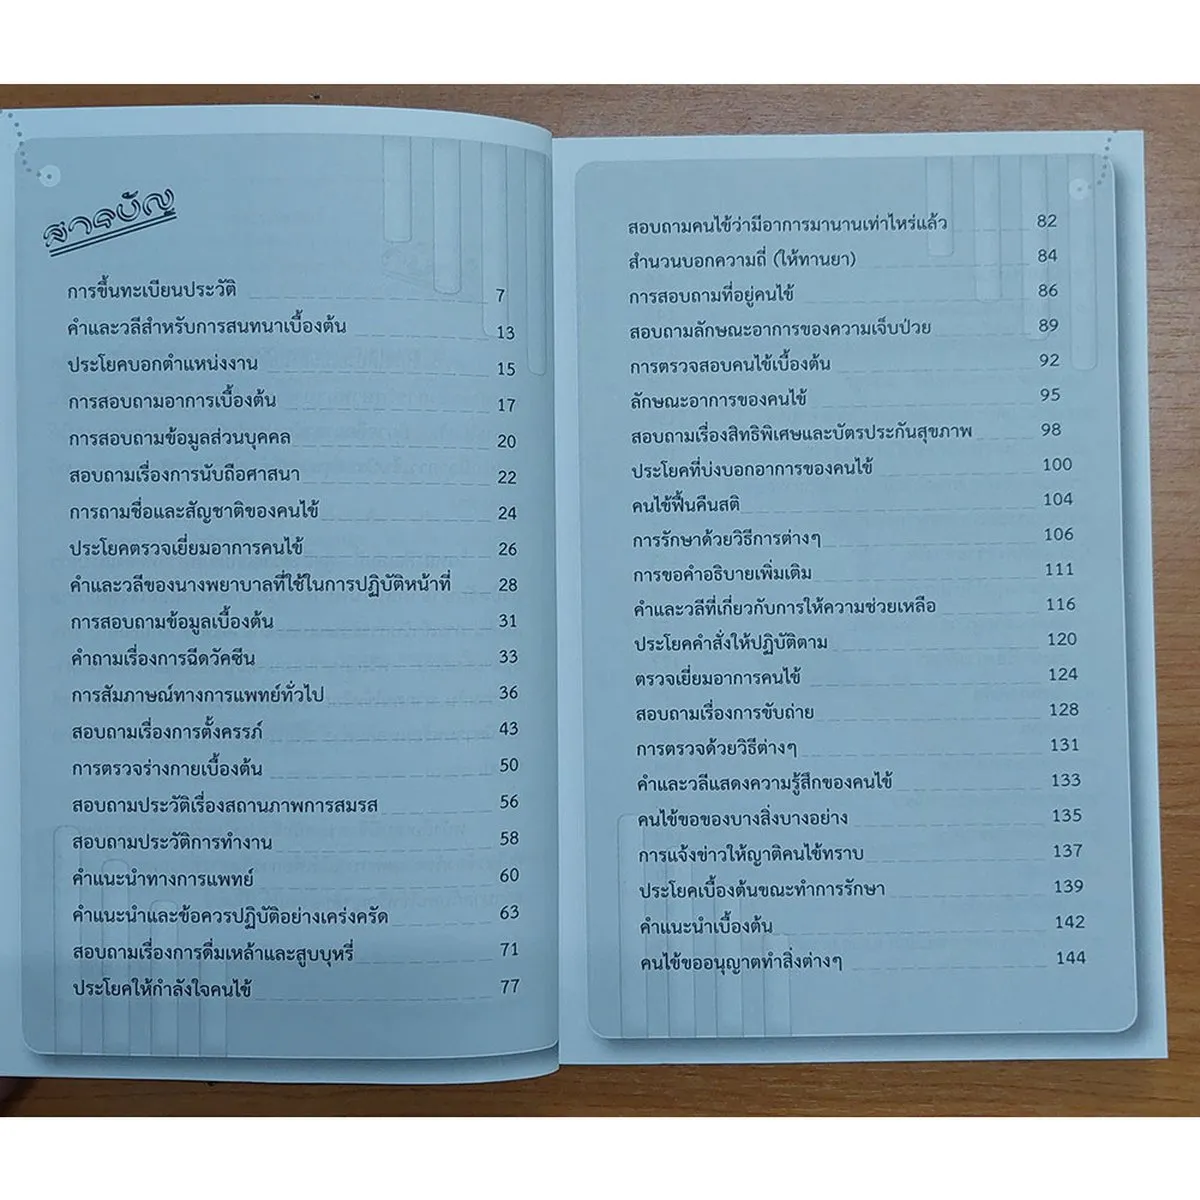 สารบัญ
การขึ้นทะเบียนประวัติ 7
คำและวลีสำหรับการสนทนาเบื้องต้น 13
ประโยคบอกตำแหน่งงาน 15
การสอบถามอาการเบื้องต้น 17
การสอบถามข้อมูลส่วนบุคคล 20
สอบถามเรื่องการนับถือศาสนา 22
การถามชื่อและสัญชาติของคนไข้ 24
ประโยคตรวจเยี่ยมอาการคนไข้ 26
คำและวลีของนางพยาบาลที่ใช้ในการปฏิบัติหน้าที่ 28
การสอบถามข้อมูลเบื้องต้น 31
คำถามเรื่องการฉีดวัคซีน 33
การสัมภาษณ์ทางการแพทย์ทั่วไป 36
สอบถามเรื่องการตั้งครรภ์ 43
การตรวจร่างกายเบื้องต้น 50
สอบถามประวัติเรื่องสถานภาพการสมรส 56
สอบถามประวัติการทำงาน 58
คำแนะนำทางการแพทย์ 60
คำแนะนำและข้อควรปฏิบัติอย่างเคร่งครัด 63
สอบถามเรื่องการดื่มเหล้าและสูบบุหรี่ 71
ประโยคให้กำลังใจคนไข้ 77
สอบถามคนไข้ว่ามีอาการมานานเท่าไหร่แล้ว 82
สำนวนบอกความถี่ (ให้ทานยา) 84
การสอบถามที่อยู่คนไข้ 86
สอบถามลักษณะอาการของความเจ็บป่วย 89
การตรวจสอบคนไข้เบื้องต้น 92
ลักษณะอาการของคนไข้ 95
สอบถามเรื่องสิทธิพิเศษและบัตรประกันสุขภาพ 98
ประโยคที่บ่งบอกอาการของคนไข้ 100
คนไข้ฟื้นคืนสติ 104
การรักษาด้วยวิธีการต่างๆ 106
การขอคำอธิบายเพิ่มเติม 111
คำและวลีที่เกี่ยวกับการให้ความช่วยเหลือ 116
ประโยคคำสั่งให้ปฏิบัติตาม 120
ตรวจเยี่ยมอาการคนไข้ 124
สอบถามเรื่องการขับถ่าย 128
การตรวจด้วยวิธีต่างๆ 131
คำและวลีแสดงความรู้สึกของคนไข้ 133
คนไข้ขอของบางสิ่งบางอย่าง 135
การแจ้งข่าวให้ญาติคนไข้ทราบ 137
ประโยคเบื้องต้นขณะทำการรักษา 139
คำแนะนำเบื้องต้น 142
คนไข้ขออนุญาตทำสิ่งต่างๆ 144